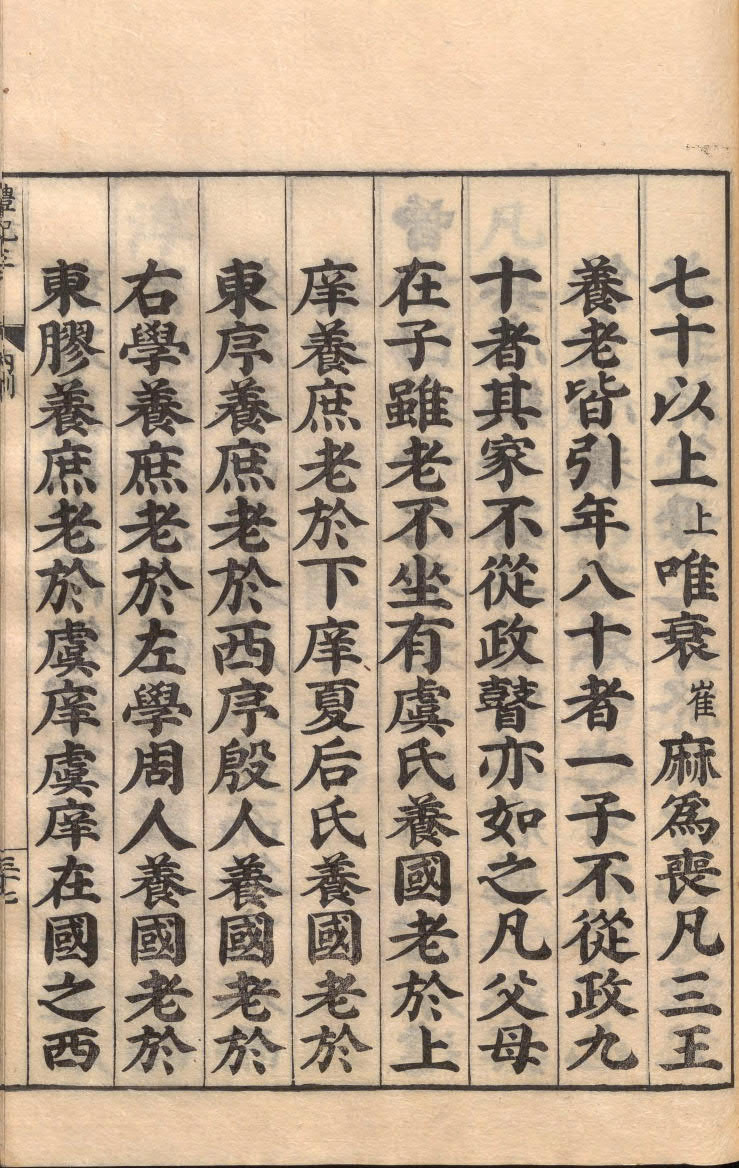 七十以上上唯衰崔麻為喪凡三王
養老皆引年八十者一子不從政九
十者其家不從政瞽亦如之凡父母
在子雖老不坐有虞氏養國老於上
庠養庶老於下庠夏后氏養國老於
東序養庶老於西序殷人養國老於
右學養庶老於左學周人養國老於
東膠養庶老於虞庠虞庠在國之西